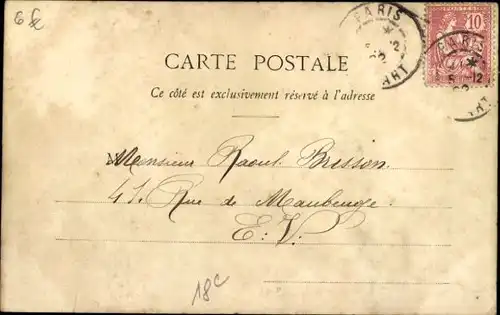 6 f
PARIS
10
POSTES
PARIS
5 12
02
DÉPART
CARTE POSTALE
Ce côté est exclusivement réservé à l'adresse
Monsieur Raoul Brisson.
41, Rue de Maubeuge,
E. V.
18c